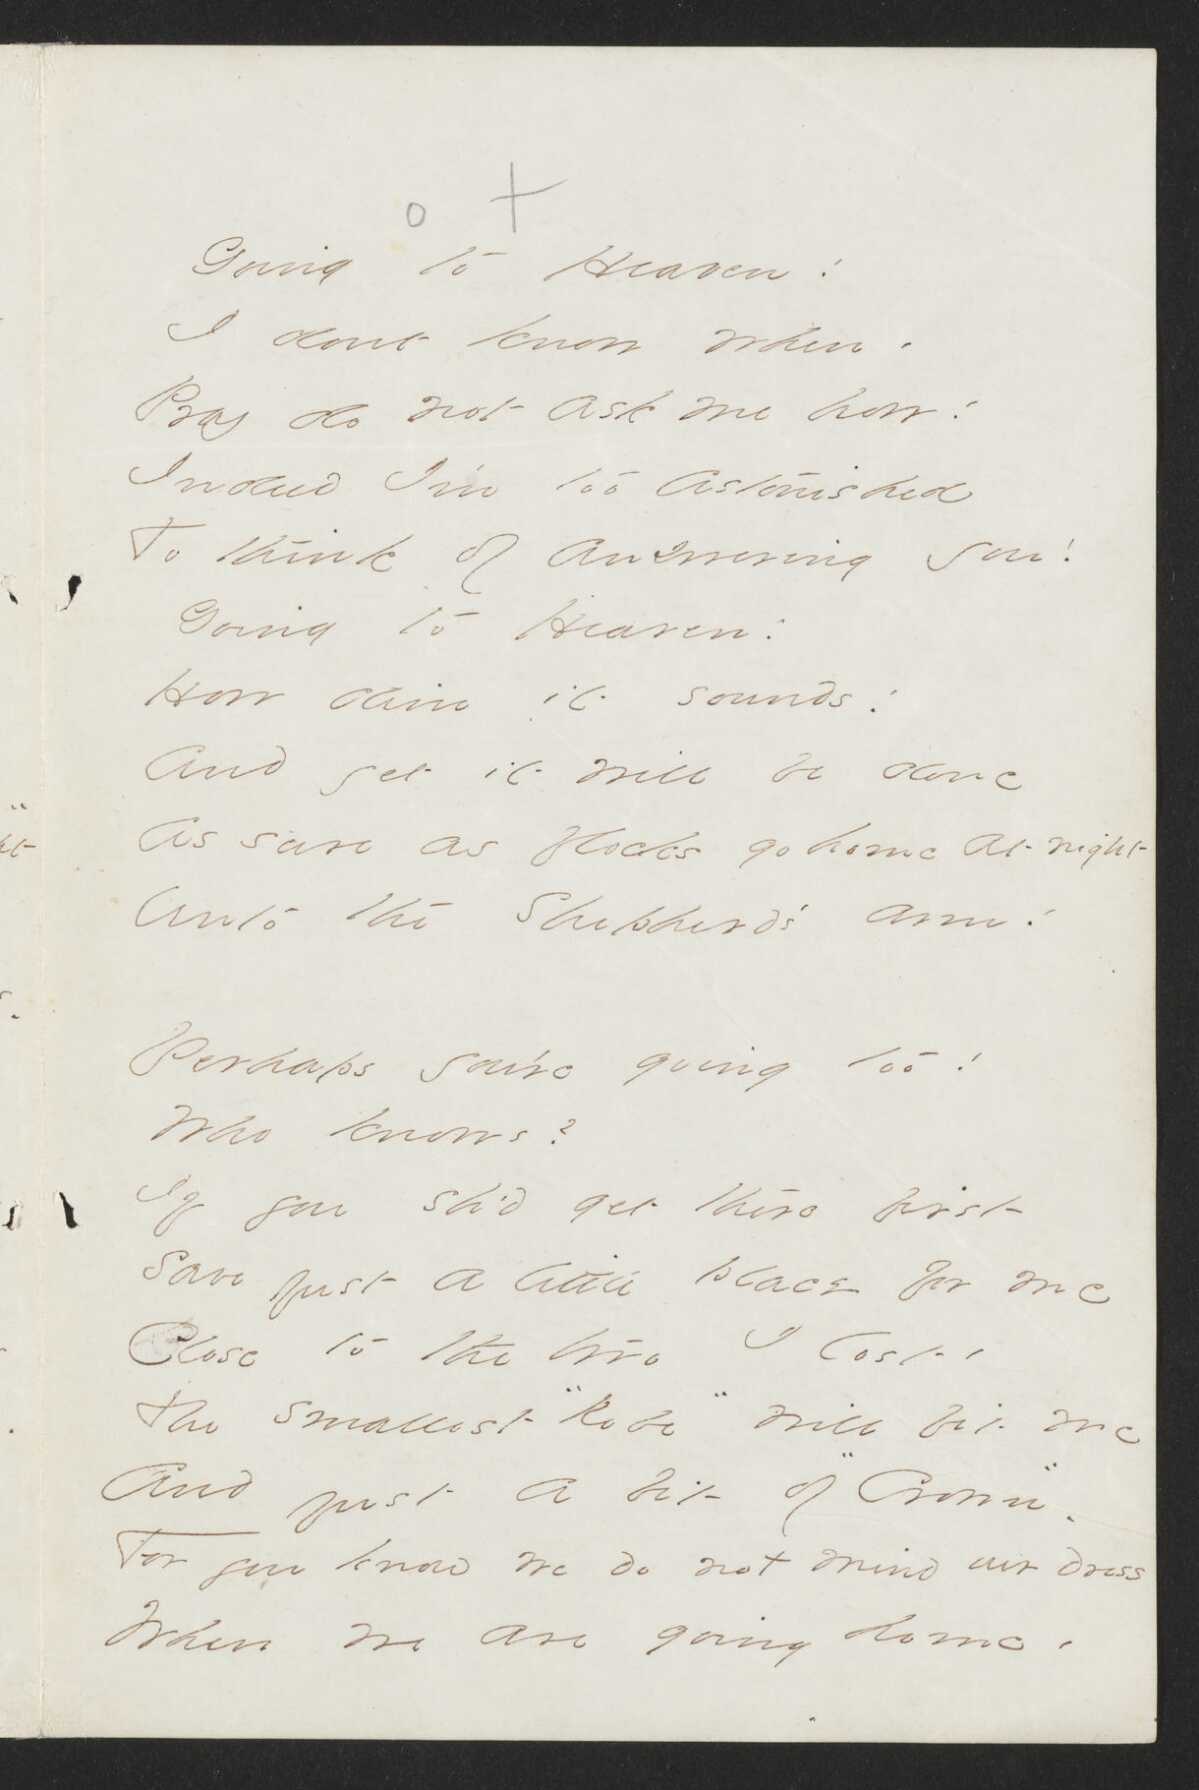 o +
Going to Heaven!
I dont know when.
Pray do not ask me how!
Indeed I'm too astonished
To think of answering you!
Going to Heaven!
How dim it sounds!
And yet it will be done
As sure as flocks go home at night
Unto the Shepherd's arm!
Perhaps you're going too!
Who knows?
If you sh'd get there first
Save just a little place for me
Close to the two I lost.
The smallest "Robe" will fit me
And just a bit of "Crown".
For you know we do not mind our dress
When we are going home.